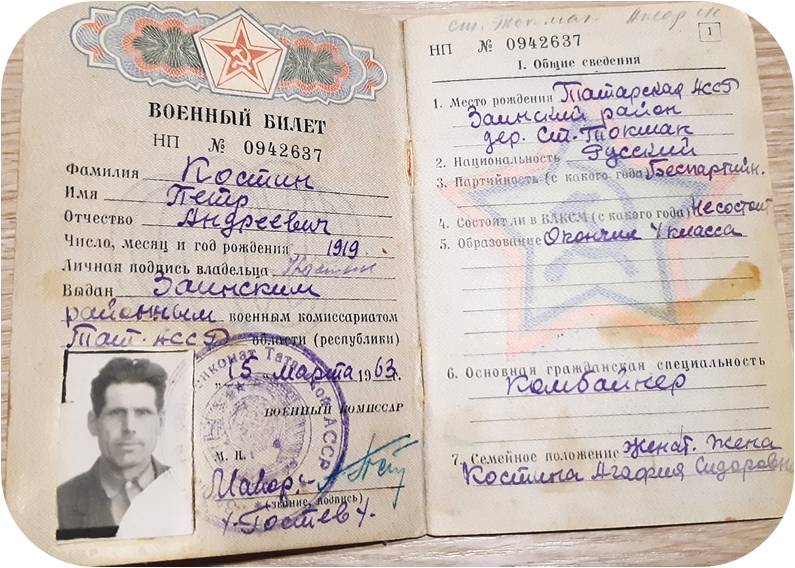 ВОЕННЫЙ БИЛЕТ
НП № 0942637
Фамилия Костин
Имя Петр
Отчество Андреевич
Число, месяц и год рождения 1919
Личная подпись владельца Костин
Выдан Заинским
районным военным комиссариатом
Тат. АССР области (республики)
"15" марта 1963 г.
ВОЕННЫЙ КОМИССАР
М. П.
Майор
(звание, подпись)
/Гостев/
ст. Токмак
НП № 0942637
1
1. Общие сведения
1. Место рождения Татарская АССР
Заинский район
дер. Ст. Токмак
2. Национальность Русский
3. Партийность (с какого года) Беспартийн.
4. Состоит ли в ВЛКСМ (с какого года) Не состоит
5. Образование Окончил 4 класса
6. Основная гражданская специальность
Комбайнер
7. Семейное положение женат. Жена
Костина Агафия Сидоровна